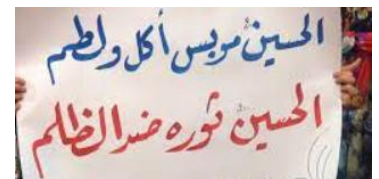 الحسين موبس أكل ولطم
الحسين ثوره ضد الظلم